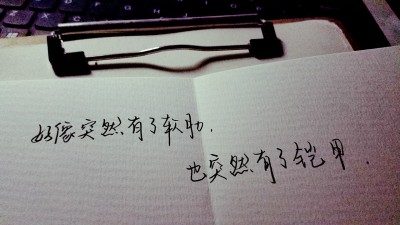 好像突然有了软肋，
也突然有了铠甲.